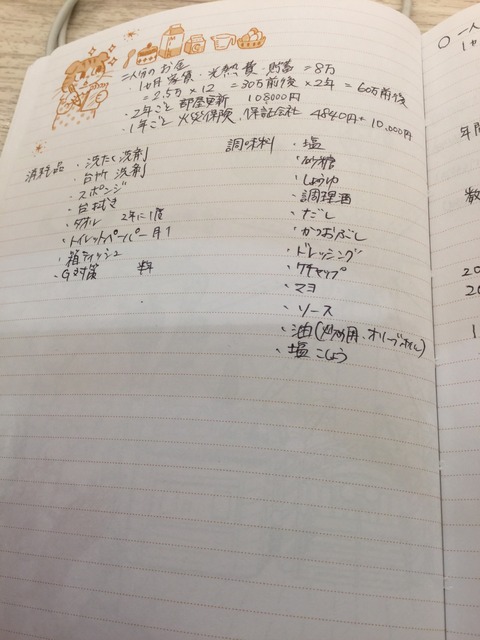 二人分のお金
1ヶ月 家賃・光熱費・貯蓄 = 8万
= 2.5万 × 12 = 30万前後 × 2年 = 60万前後
・2年ごと 部屋更新 108000円
・1年ごと 火災保険、保証会社 4840円+10,000円
消耗品
・洗たく洗剤
・台所 洗剤
・スポンジ
・台ふき
・タオル 2年に1度
・トイレットペーパー 月1
・箱ティッシュ
・G対策
調味料
・塩
・砂糖
・しょうゆ
・調理酒
・だし
・かつおぶし
・ドレッシング
・ケチャップ
・マヨ
・ソース
・油(炒め用、オリーブオイル)
・塩こしょう
○一人
1ヶ
年間
数
20
20
1